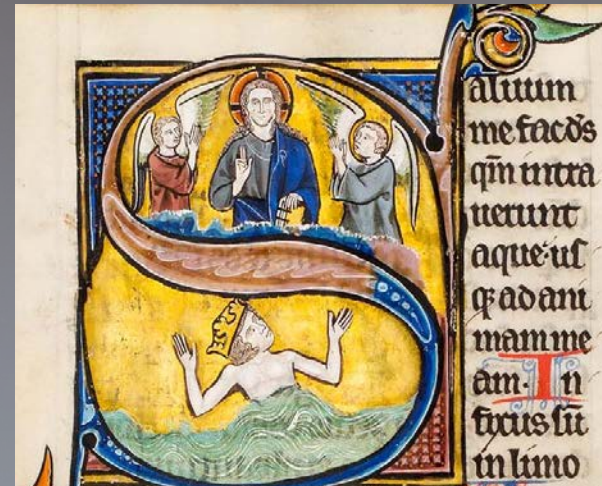 Saluum
me fac d̄s
qm̄ intra
uerunt
aque: us
qꝫ ad ani
mam me
am. In
fixus sū
in limo